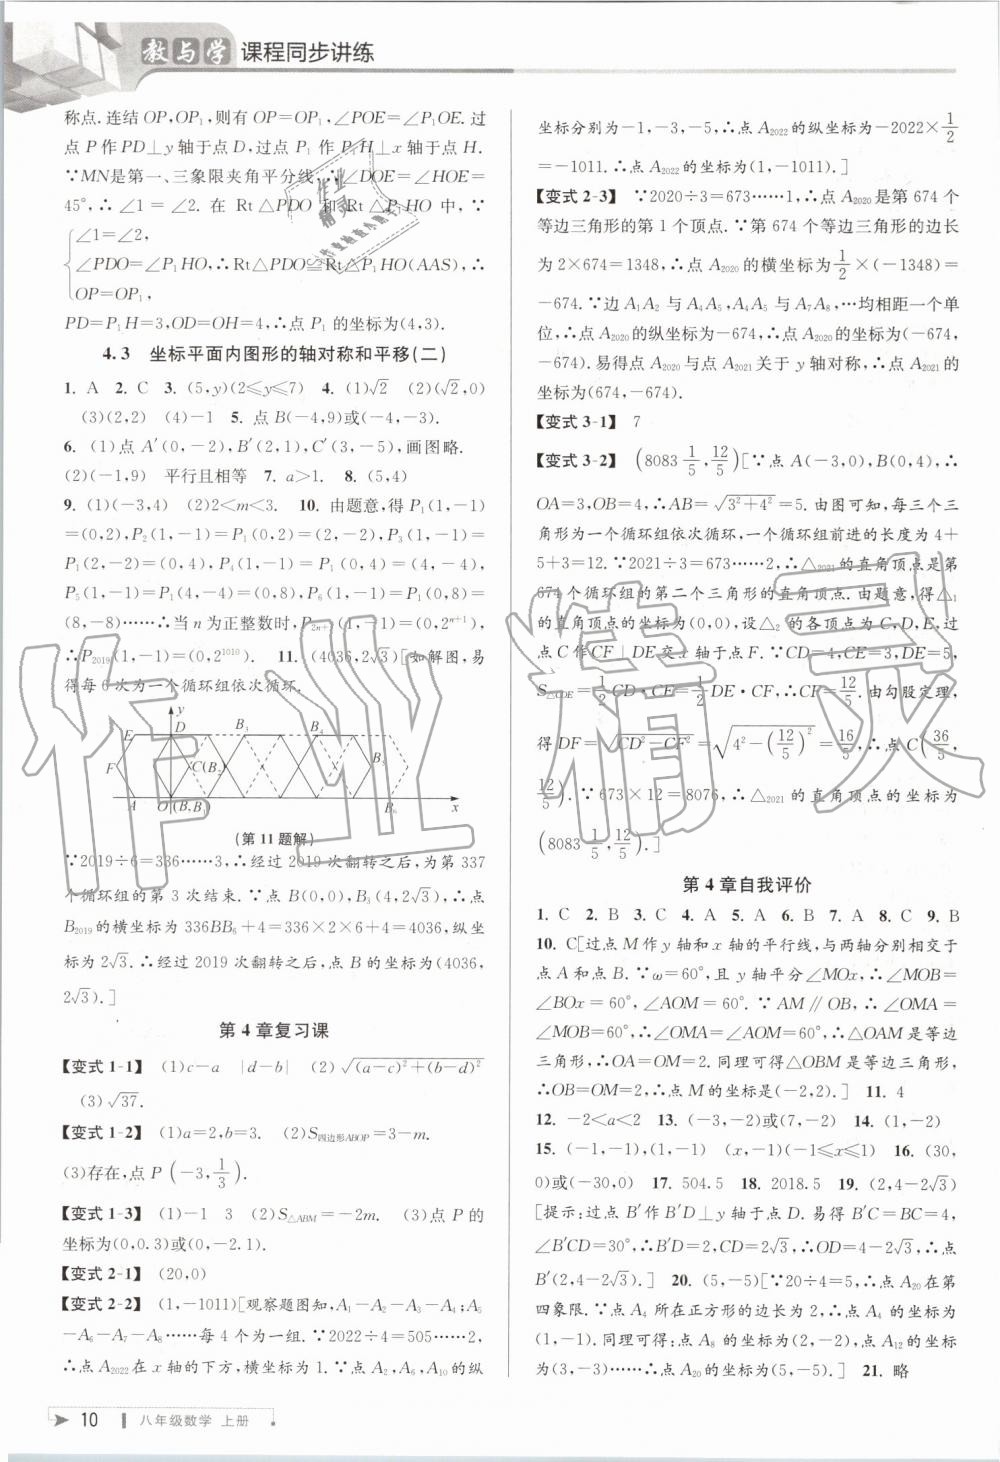 教与学 课程同步讲练
称点.连结OP,OP₁,则有OP=OP₁,∠POE=∠P₁OE.过
点P作PD⊥y轴于点D,过点P₁作P₁H⊥x轴于点H.
∵MN是第一、三象限夹角平分线,∴∠DOE=∠HOE=
45°,∴∠1=∠2.在Rt△PDO和Rt△P₁HO中,∵
∠1=∠2,
∠PDO=∠P₁HO,∴Rt△PDO≌Rt△P₁HO(AAS),∴
OP=OP₁,
PD=P₁H=3,OD=OH=4,∴点P₁的坐标为(4,3).
4.3 坐标平面内图形的轴对称和平移(二)
1. A 2. C 3. (5,y)(2≤y≤7) 4. (1)√2 (2)(√2,0)
(3)(2,2) (4)-1 5. 点B(-4,9)或(-4,-3).
6. (1)点A′(0,-2),B′(2,1),C′(3,-5),画图略.
(2)(-1,9) 平行且相等 7. a>1. 8. (5,4)
9. (1)(-3,4) (2)2<m<3. 10. 由题意,得P₁(1,-1)
=(0,2),P₂(1,-1)=P₁(0,2)=(2,-2),P₃(1,-1)=
P₁(2,-2)=(0,4),P₄(1,-1)=P₁(0,4)=(4,-4),
P₅(1,-1)=P₁(4,-4)=(0,8),P₆(1,-1)=P₁(0,8)=
(8,-8)……∴当n为正整数时,P₂ₙ₊₁(1,-1)=(0,2ⁿ⁺¹),
∴P₂₀₁₉(1,-1)=(0,2¹⁰¹⁰). 11. (4036,2√3)[如解图,易
得每6次为一个循环组依次循环.
y
E D B₃ B₄
F C(B₂)
A O (B,B₁) B₆ x
(第11题解)
∵2019÷6=336……3,∴经过2019次翻转之后,为第337
个循环组的第3次结束.∵点B(0,0),B₃(4,2√3),∴点
B₂₀₁₉的横坐标为336BB₆+4=336×2×6+4=4036,纵坐
标为2√3.∴经过2019次翻转之后,点B的坐标为(4036,
2√3).]
第4章复习课
【变式1-1】 (1)c-a |d-b| (2)√((a-c)²+(b-d)²)
(3)√37.
【变式1-2】 (1)a=2,b=3. (2)S四边形ABOP=3-m.
(3)存在,点P(-3,1/3).
【变式1-3】 (1)-1 3 (2)S△ABM=-2m. (3)点P的
坐标为(0,0.3)或(0,-2.1).
【变式2-1】 (20,0)
【变式2-2】 (1,-1011)[观察题图知,A₁-A₂-A₃-A₄;A₅
-A₆-A₇-A₈……每4个为一组.∵2022÷4=505……2,
∴点A₂₀₂₂在x轴的下方,横坐标为1.∵点A₂,A₆,A₁₀的纵
坐标分别为-1,-3,-5,∴点A₂₀₂₂的纵坐标为-2022×1/2
=-1011.∴点A₂₀₂₂的坐标为(1,-1011).]
【变式2-3】 ∵2020÷3=673……1,∴点A₂₀₂₀是第674个
等边三角形的第1个顶点.∵第674个等边三角形的边长
为2×674=1348,∴点A₂₀₂₀的横坐标为1/2×(-1348)=
-674.∵边A₁A₂与A₄A₅,A₄A₅与A₇A₈,…均相距一个单
位,∴点A₂₀₂₀的纵坐标为-674,∴点A₂₀₂₀的坐标为(-674,
-674).易得点A₂₀₂₀与点A₂₀₂₁关于y轴对称,∴点A₂₀₂₁的
坐标为(674,-674).
【变式3-1】 7
【变式3-2】 (8083 1/5,12/5)[∵点A(-3,0),B(0,4),∴
OA=3,OB=4,∴AB=√(3²+4²)=5.由图可知,每三个三
角形为一个循环组依次循环,一个循环组前进的长度为4+
5+3=12.∵2021÷3=673……2,∴△₂₀₂₁的直角顶点是第
674个循环组的第二个三角形的直角顶点.由题意,得△₁
的直角顶点的坐标为(0,0),设△₂的各顶点为C,D,E,过
点C作CF⊥DE交x轴于点F.∵CD=4,CE=3,DE=5,
S△CDE=1/2CD·CE=1/2DE·CF,∴CF=12/5.由勾股定理,
得DF=√(CD²-CF²)=√(4²-(12/5)²)=16/5,∴点C(36/5,
12/5).∵673×12=8076,∴△₂₀₂₁的直角顶点的坐标为
(8083 1/5,12/5).]
第4章自我评价
1. C 2. B 3. C 4. A 5. A 6. B 7. A 8. C 9. B
10. C[过点M作y轴和x轴的平行线,与两轴分别相交于
点A和点B.∵ω=60°,且y轴平分∠MOx,∴∠MOB=
∠BOx=60°,∠AOM=60°.∵AM∥OB,∴∠OMA=
∠MOB=60°,∴∠OMA=∠AOM=60°,∴△OAM是等边
三角形,∴OA=OM=2.同理可得△OBM是等边三角形,
∴OB=OM=2,∴点M的坐标是(-2,2).] 11. 4
12. -2<a<2 13. (-3,-2)或(7,-2) 14. (1,-2)
15. (-1,-1),(1,-1) (x,-1)(-1≤x≤1) 16. (30,
0)或(-30,0) 17. 504.5 18. 2018.5 19. (2,4-2√3)
[提示:过点B′作B′D⊥y轴于点D.易得B′C=BC=4,
∠B′CD=30°,∴B′D=2,CD=2√3,∴OD=4-2√3,∴点
B′(2,4-2√3).] 20. (5,-5)[∵20÷4=5,∴点A₂₀在第
四象限.∵点A₄所在正方形的边长为2,∴点A₄的坐标为
(1,-1).同理可得:点A₈的坐标为(2,-2),点A₁₂的坐标
为(3,-3)……∴点A₂₀的坐标为(5,-5).] 21. 略
10 八年级数学 上册
作业精灵